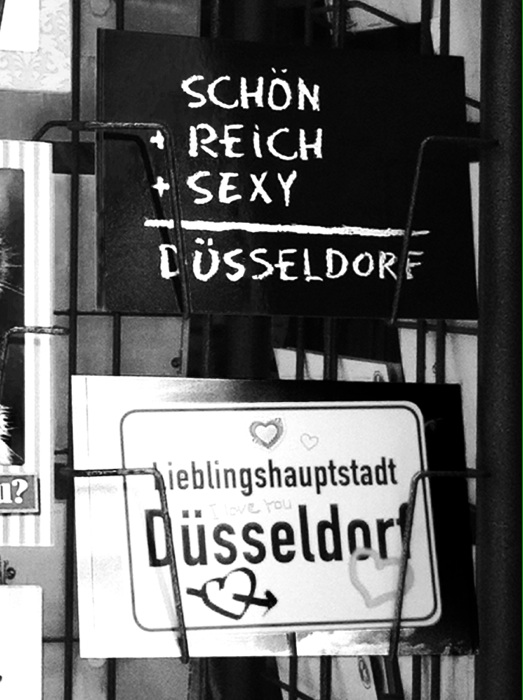 SCHÖN
+ REiCH
+ SEXY
DÜSSELDORF
Lieblingshauptstadt
I love You
Düsseldorf
u?